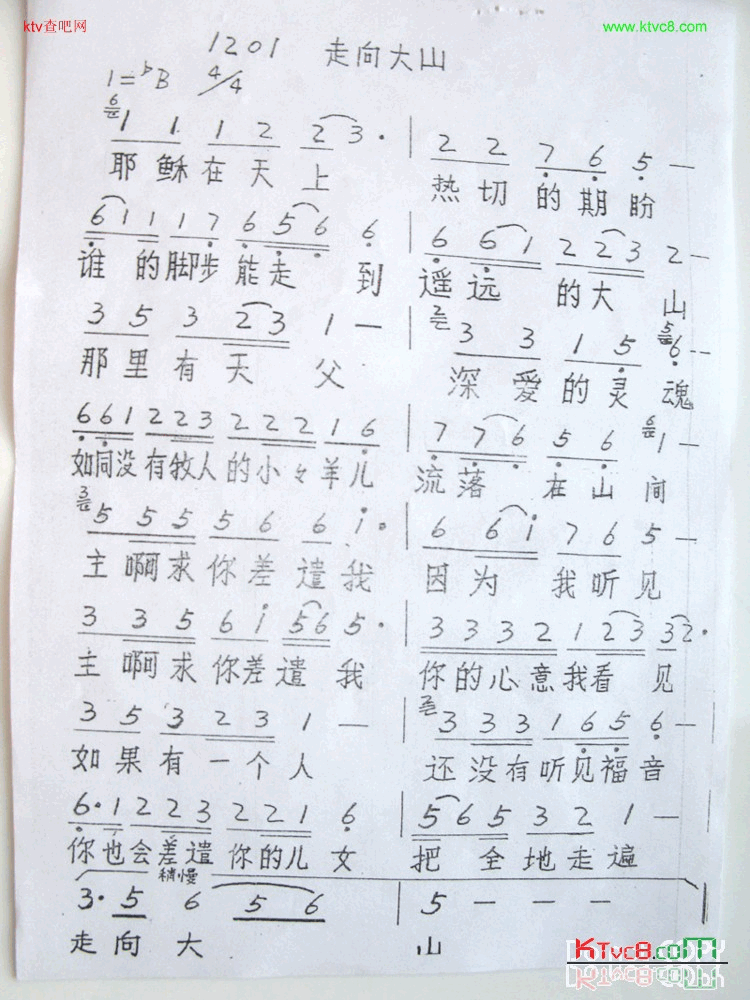 ktv查吧网 www.ktvc8.com
1201 走向大山
1=♭B 4/4
6 1 1 1 2 2 3 · | 2 2 7 6 5 —
耶稣在天上 热切的期盼
6 1 1 1 7 6 5 6 6 | 6 6 1 2 2 3 2 —
谁的脚步能走到 遥远的大山
3 5 3 2 3 1 — | 2 3 3 1 5 5 6 —
那里有天父 深爱的灵魂
6 6 1 2 2 3 2 2 2 1 6 | 7 7 6 5 6 6 1 —
如同没有牧人的小々羊儿 流落在山间
3 5 5 5 5 6 6 i · | 6 6 i 7 6 5 —
主啊求你差遣我 因为我听见
3 3 5 6 i 5 6 5 · | 3 3 3 2 1 2 3 3 2 ·
主啊求你差遣我 你的心意我看见
3 5 3 2 3 1 — | 2 3 3 3 1 6 5 6 —
如果有一个人 还没有听见福音
6 · 1 2 2 3 2 2 1 6 | 5 6 5 3 2 1 —
你也会差遣你的儿女 把全地走遍
稍慢
3 · 5 6 5 6 | 5 — — —
走向大 山
KTvc8.com